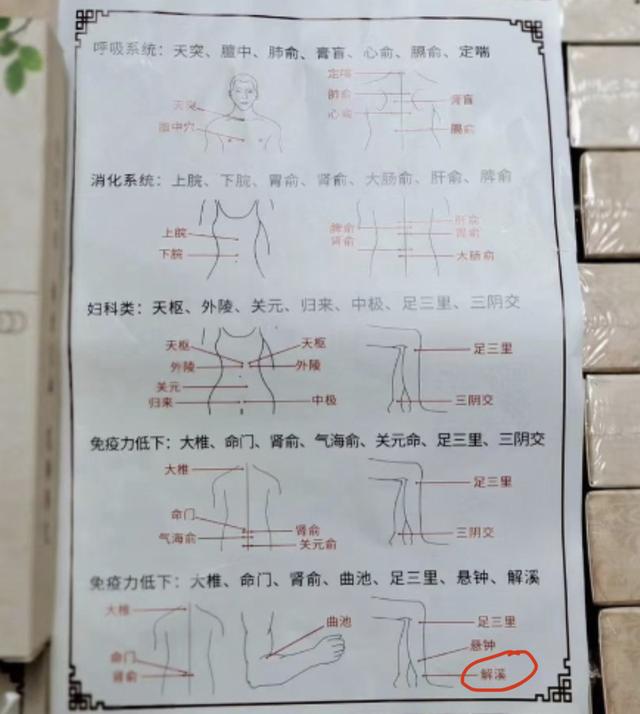 呼吸系统：天突、膻中、肺俞、膏盲、心俞、膈俞、定喘
定喘
肺俞
天突
膏盲
心俞
膻中穴
膈俞
消化系统：上脘、下脘、胃俞、肾俞、大肠俞、肝俞、脾俞
上脘
下脘
脾俞
肾俞
肝俞
胃俞
大肠俞
妇科类：天枢、外陵、关元、归来、中极、足三里、三阴交
天枢
外陵
关元
归来
天枢
外陵
中极
足三里
三阴交
免疫力低下：大椎、命门、肾俞、气海俞、关元命、足三里、三阴交
大椎
命门
气海俞
肾俞
关元俞
足三里
三阴交
免疫力低下：大椎、命门、肾俞、曲池、足三里、悬钟、解溪
大椎
命门
肾俞
曲池
足三里
悬钟
解溪